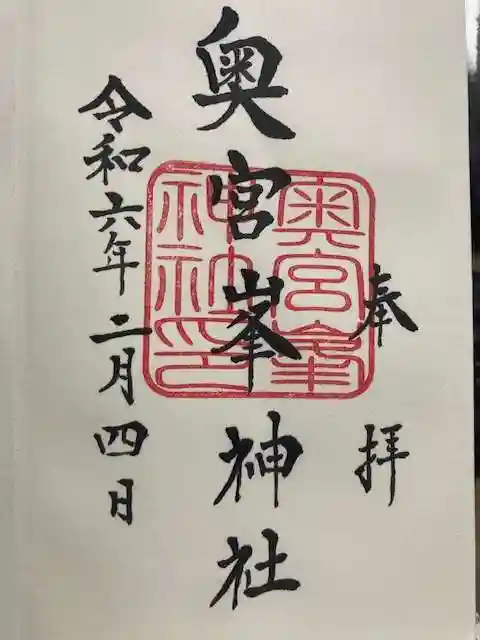 奉拝
奥宮峯神社
奥宮峯
神社印
令和六年二月四日